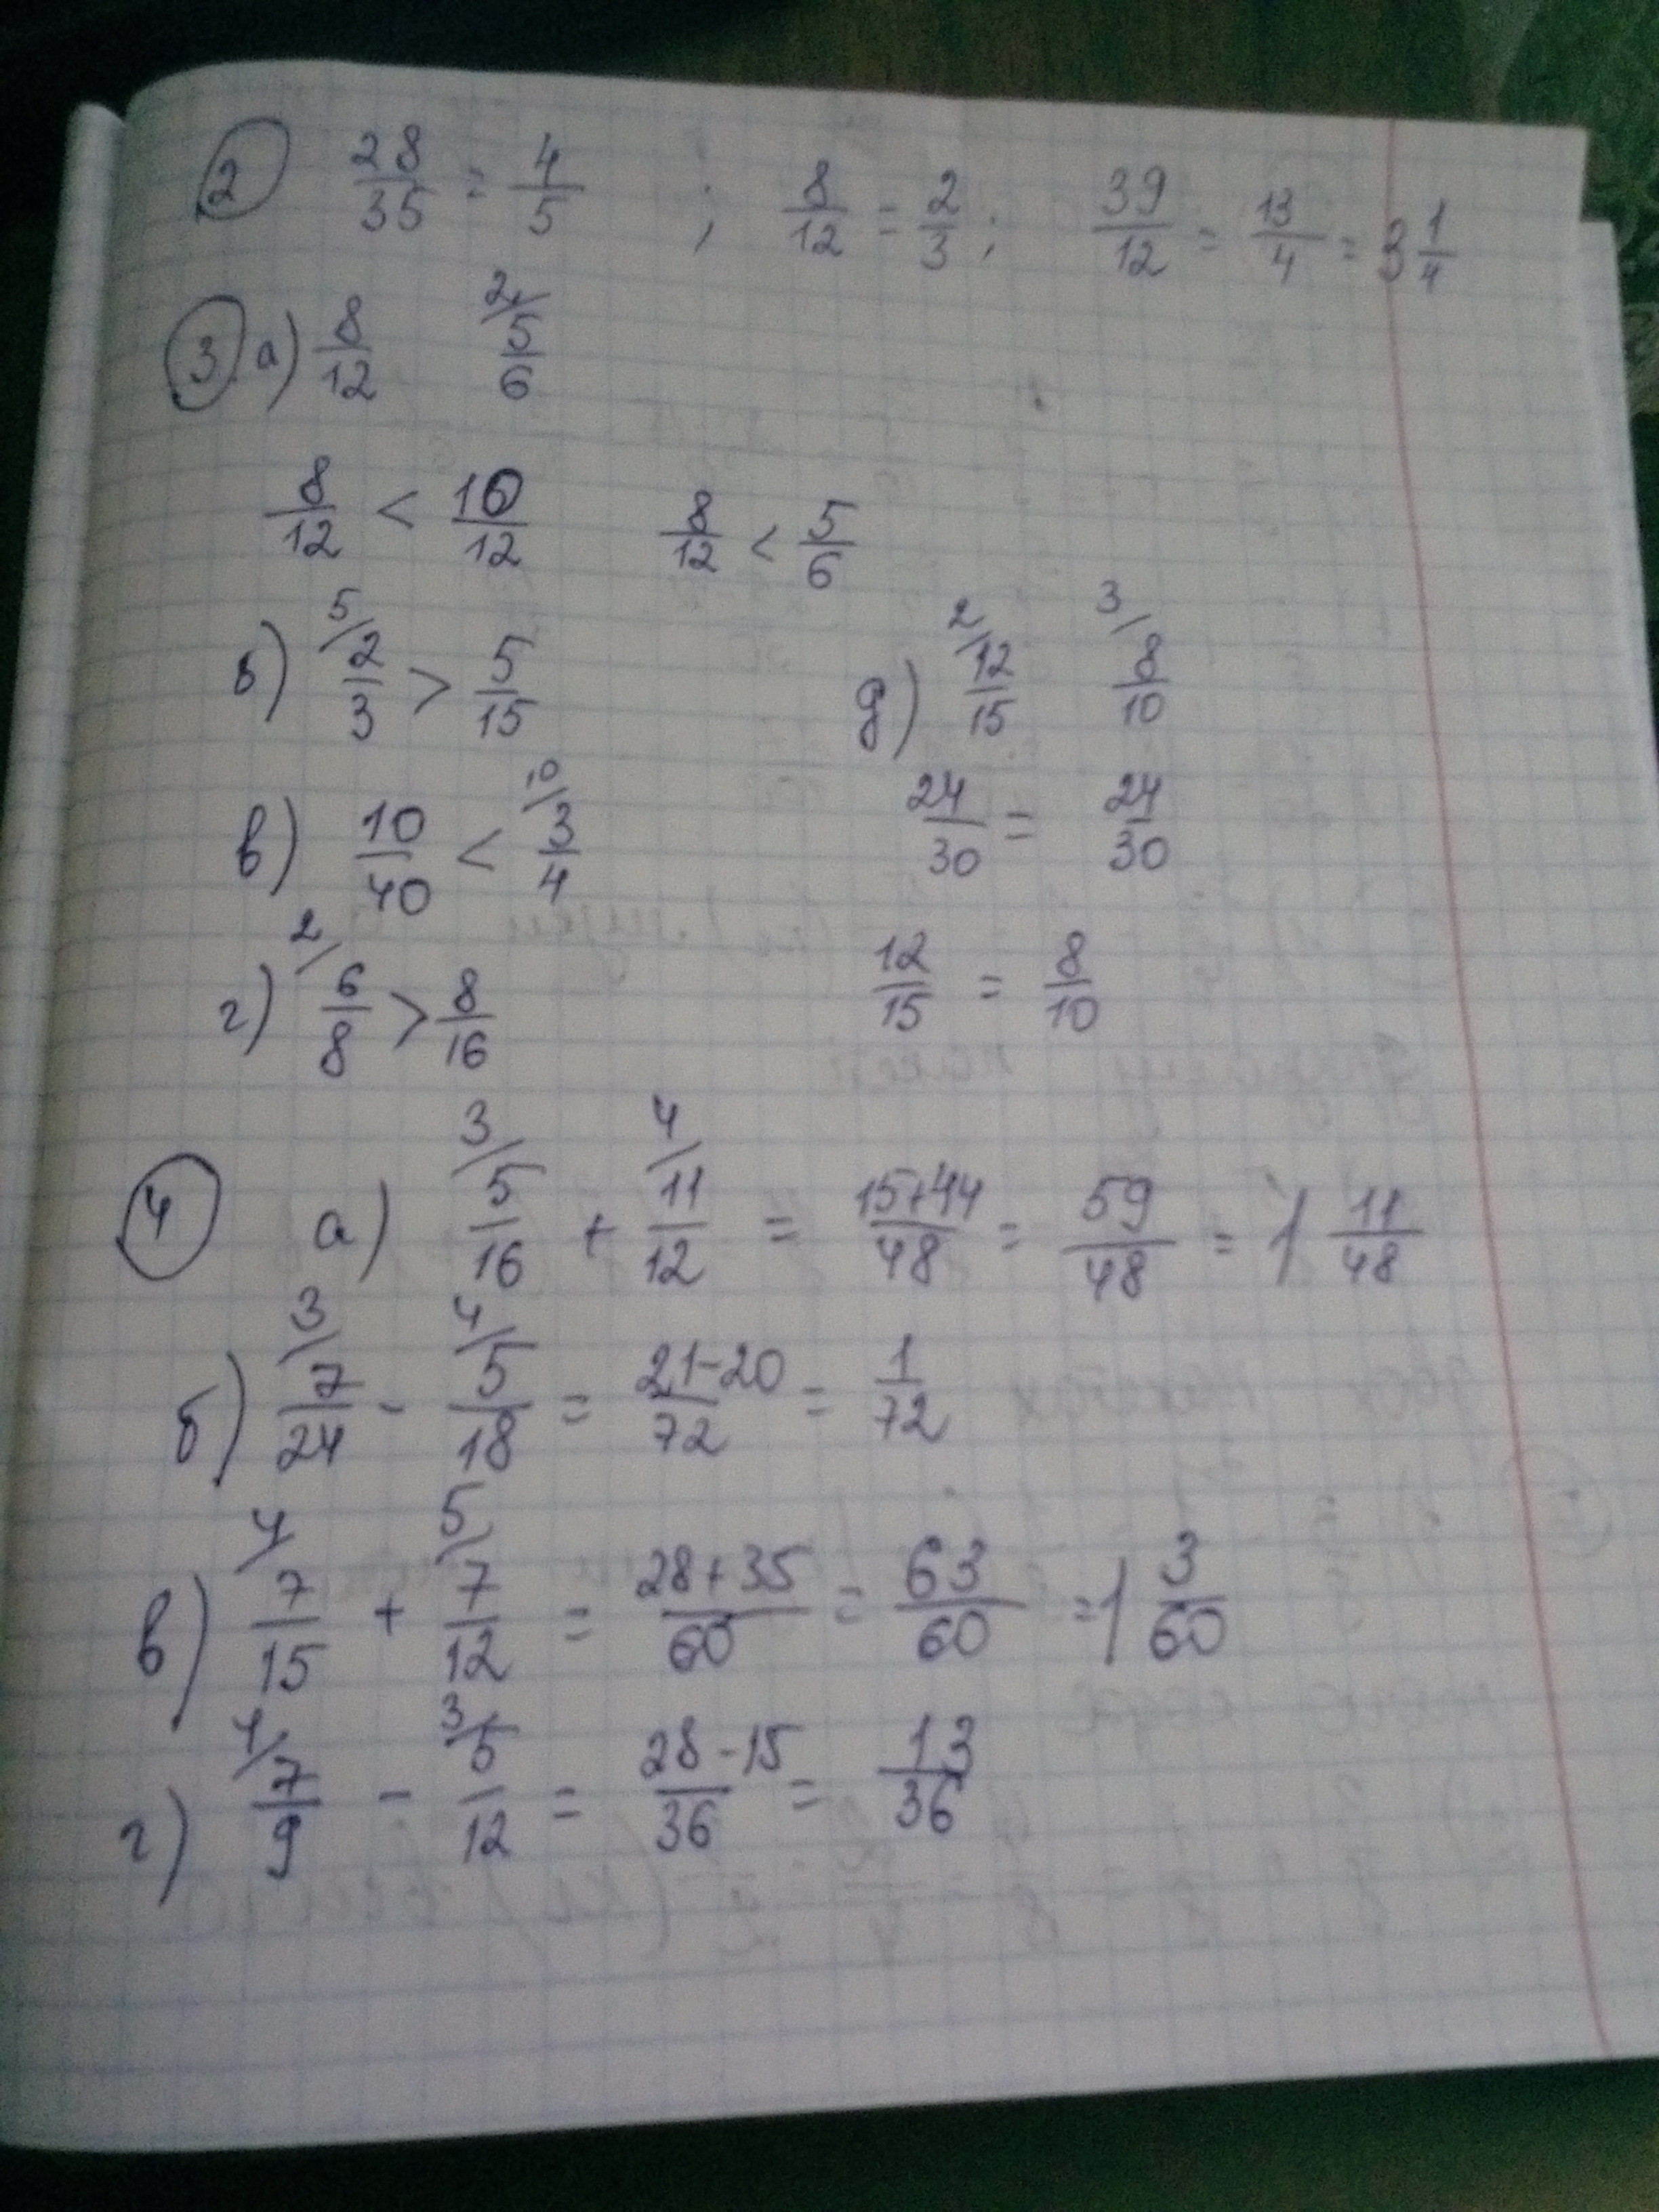 2 28/35 = 4/5 ; 8/12 = 2/3 ; 39/12 = 13/4 = 3 1/4
3 а) 8/12 2/ 5/6
8/12 < 10/12 8/12 < 5/6
б) 5/ 2/3 > 5/15
в) 10/40 < 10/ 3/4
г) 2/ 6/8 > 8/16
д) 2/ 12/15 3/ 8/10
24/30 = 24/30
12/15 = 8/10
4 а) 3/ 5/16 + 4/ 11/12 = 15+44/48 = 59/48 = 1 11/48
б) 3/ 7/24 - 4/ 5/18 = 21-20/72 = 1/72
в) 4/ 7/15 + 5/ 7/12 = 28+35/60 = 63/60 = 1 3/60
г) 4/ 7/9 - 3/ 5/12 = 28-15/36 = 13/36